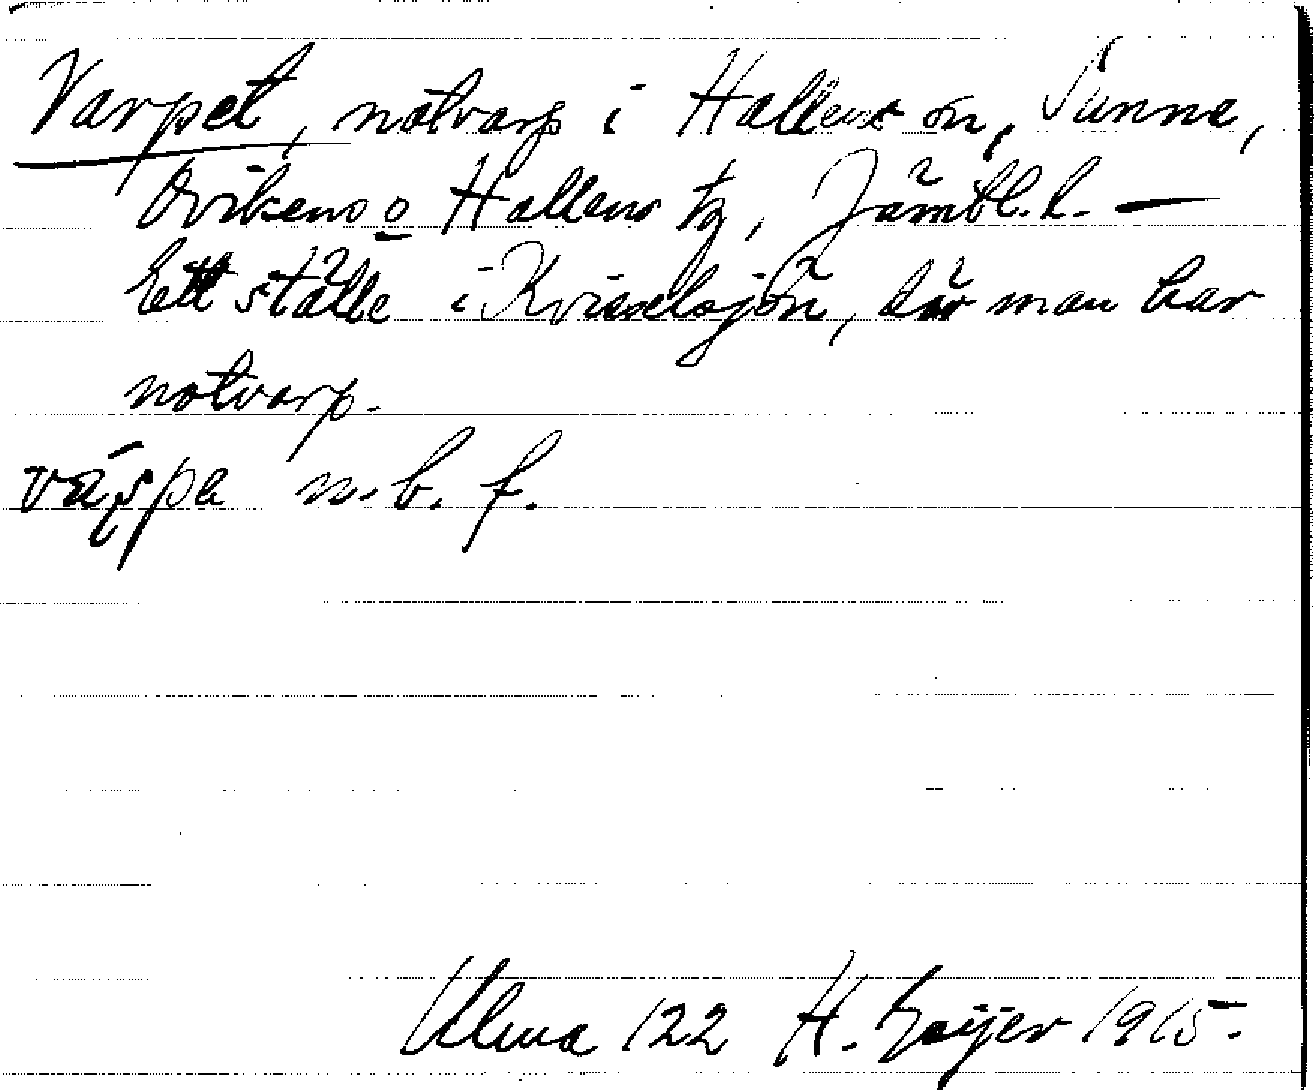 Varpet, notvarp i Hallens sn, Sunne,
Ovikens o Hallens tg, Jämtl. l. —
Ett ställe i Kvisselsjön, där man har
notvarp.
väṣpa n. b. f.
Ulma 122 H. Geijer 1915.